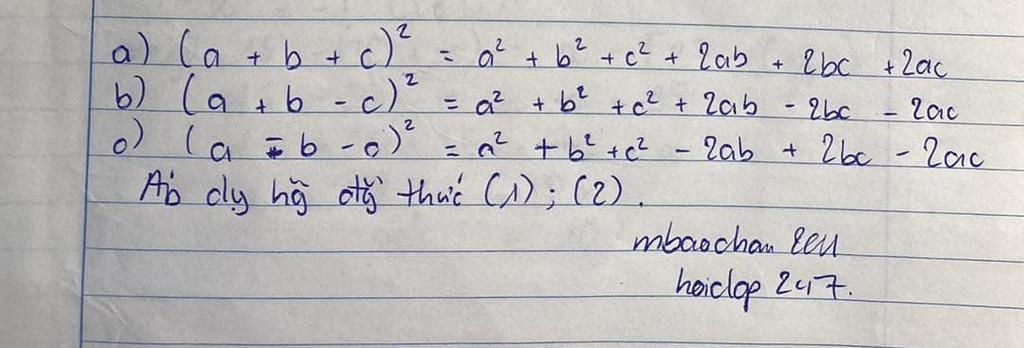 a) (a + b + c)² = a² + b² + c² + 2ab + 2bc + 2ac
b) (a + b - c)² = a² + b² + c² + 2ab - 2bc - 2ac
c) (a - b - c)² = a² + b² + c² - 2ab + 2bc - 2ac
Áp dụ hg̃ đtg̃ thức (1) ; (2) .
mbaochau
hoidap 247.